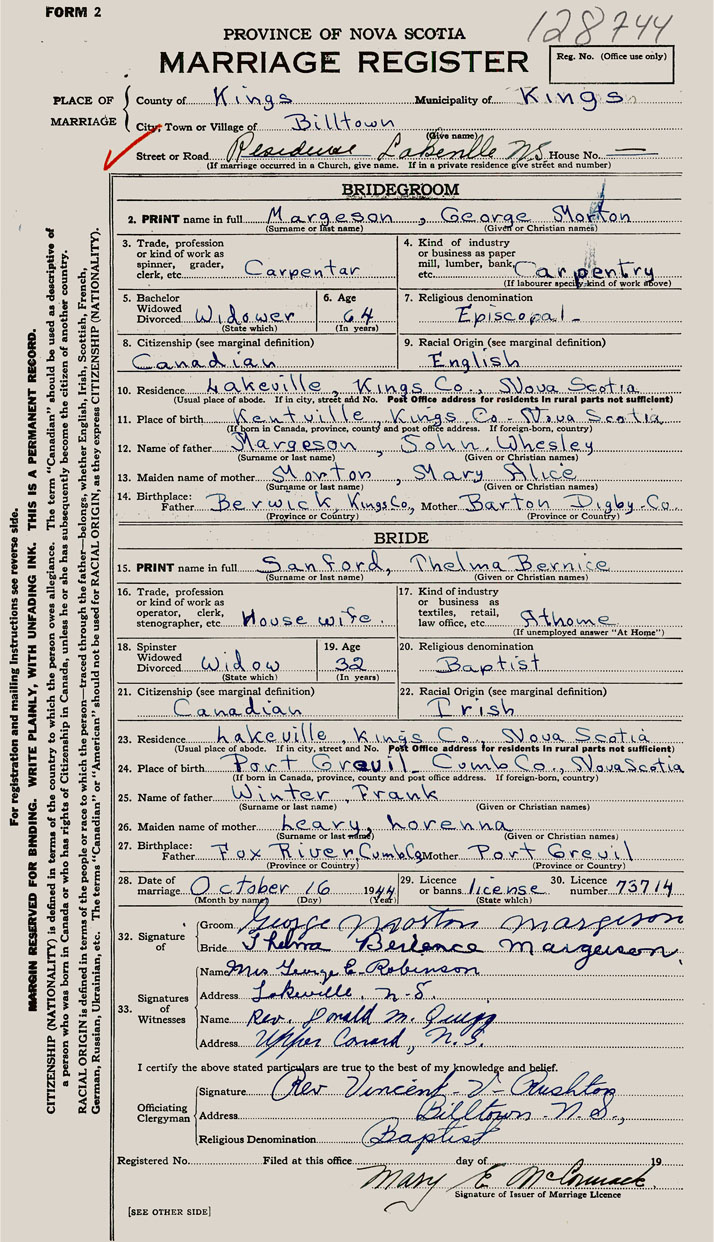 FORM 2
128744
PROVINCE OF NOVA SCOTIA
MARRIAGE REGISTER
Reg. No. (Office use only)
PLACE OF MARRIAGE
County of Kings Municipality of Kings
City, Town or Village of Billtown
(Give name)
Street or Road Residence Lakeville N.S. House No. —
(If marriage occurred in a Church, give name. If in a private residence give street and number)
BRIDEGROOM
2. PRINT name in full Margeson, George Morton
(Surname or last name) (Given or Christian names)
3. Trade, profession or kind of work as spinner, grader, clerk, etc. Carpentar
4. Kind of industry or business as paper mill, lumber, bank, etc. Carpentry
(If labourer specify kind of work above)
5. Bachelor Widowed Divorced Widower
(State which)
6. Age 64
(In years)
7. Religious denomination Episcopal
8. Citizenship (see marginal definition) Canadian
9. Racial Origin (see marginal definition) English
10. Residence Lakeville, Kings Co., Nova Scotia
(Usual place of abode. If in city, street and No. Post Office address for residents in rural parts not sufficient)
11. Place of birth Kentville, Kings Co. Nova Scotia
(If born in Canada, province, county and post office address. If foreign-born, country)
12. Name of father Margeson, John Whesley
(Surname or last name) (Given or Christian names)
13. Maiden name of mother Morton, Mary Alice
(Surname or last name) (Given or Christian names)
14. Birthplace: Father Berwick, Kings Co., Mother Barton Digby Co.
(Province or Country) (Province or Country)
BRIDE
15. PRINT name in full Sanford, Thelma Bernice
(Surname or last name) (Given or Christian names)
16. Trade, profession or kind of work as operator, clerk, stenographer, etc. House wife.
17. Kind of industry or business as textiles, retail, law office, etc. Athome
(If unemployed answer "At Home")
18. Spinster Widowed Divorced Widow
(State which)
19. Age 32
(In years)
20. Religious denomination Baptist
21. Citizenship (see marginal definition) Canadian
22. Racial Origin (see marginal definition) Irish
23. Residence Lakeville, Kings Co., Nova Scotia
(Usual place of abode. If in city, street and No. Post Office address for residents in rural parts not sufficient)
24. Place of birth Port Grevil Cumb Co., Nova Scotia
(If born in Canada, province, county and post office address. If foreign-born, country)
25. Name of father Winter, Frank
(Surname or last name) (Given or Christian names)
26. Maiden name of mother Leary, Lorenna
(Surname or last name) (Given or Christian names)
27. Birthplace: Father Fox River, Cumb Co Mother Port Grevil
(Province or Country) (Province or Country)
28. Date of marriage October 16 1944
(Month by name) (Day) (Year)
29. Licence or banns license
(State which)
30. Licence number 73714
32. Signature of Groom George Morton Margeson
Bride Thelma Berience Margeson.
33. Signatures of Witnesses
Name Mrs George E. Robinson
Address Lakeville, N.S.
Name Rev. Donald M.
Address Upper Canard, N.S.
I certify the above stated particulars are true to the best of my knowledge and belief.
Officiating Clergyman
Signature Rev Vincent V Rushton
Address Billtown N.S.,
Religious Denomination Baptist
Registered No. Filed at this office day of 19
Mary E McCormack
Signature of Issuer of Marriage Licence
[SEE OTHER SIDE]
For registration and mailing instructions see reverse side.
MARGIN RESERVED FOR BINDING. WRITE PLAINLY, WITH UNFADING INK. THIS IS A PERMANENT RECORD.
CITIZENSHIP (NATIONALITY) is defined in terms of the country to which the person owes allegiance. The term "Canadian" should be used as descriptive of
a person who was born in Canada or who has rights of Citizenship in Canada, unless he or she has subsequently become the citizen of another country.
RACIAL ORIGIN is defined in terms of the people or race to which the person—traced through the father—belongs, whether English, Irish, Scottish, French,
German, Russian, Ukrainian, etc. The terms "Canadian" or "American" should not be used for RACIAL ORIGIN, as they express CITIZENSHIP (NATIONALITY).